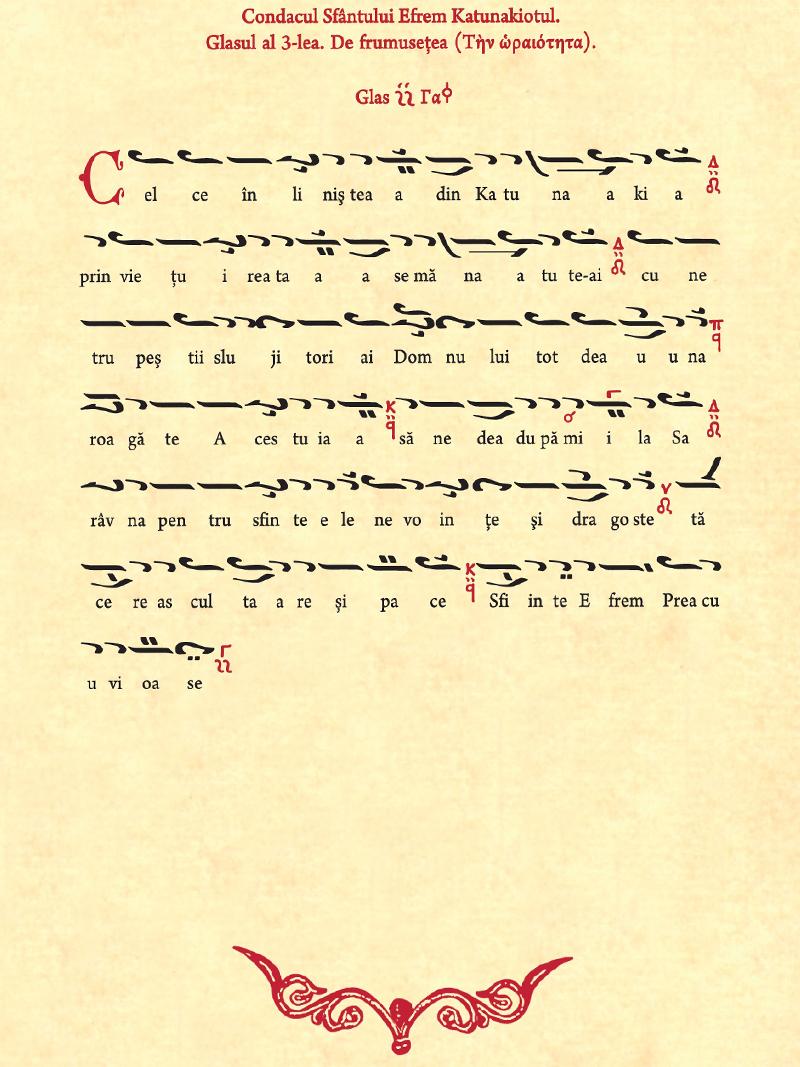 Condacul Sfântului Efrem Katunakiotul.
Glasul al 3-lea. De frumusețea (Τὴν ὡραιότητα).
Glas Γα
Cel ce în li niş tea a din Ka tu na a ki a
prin vie ţu i rea ta a a se mă na a tu te-ai cu ne
tru peş tii slu ji tori ai Dom nu lui tot dea u u na
roa gă te A ces tu ia a să ne dea du pă mi i la Sa
râv na pen tru sfin te e le ne vo in ţe şi dra go ste tă
ce re as cul ta a re şi pa ce Sfi in te E frem Prea cu
u vi oa se